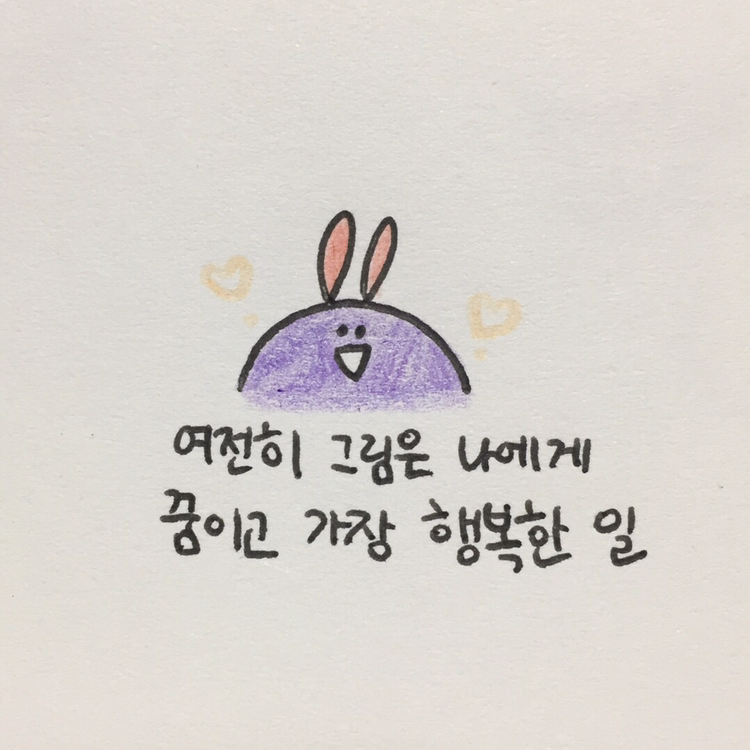 여전히 그림은 나에게
꿈이고 가장 행복한 일